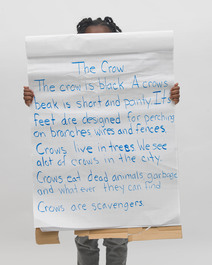 The Crow
The crow is black. A crows
beak is short and pointy. It's
feet are designed for perching
on branches wires and fences.
Crows live in trees. We see
alot of crows in the city.
Crows eat dead animals garbage
and what ever they can find.
Crows are scavengers.